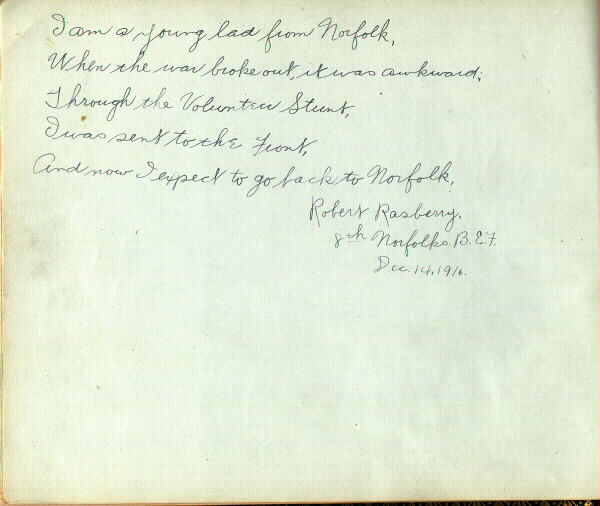 I am a young lad from Norfolk,
When the war broke out, it was awkward;
Through the Volunteer Stunt,
I was sent to the Front,
And now I expect to go back to Norfolk.
Robert Rasberry.
8th Norfolks. B.E.F.
Dec. 14. 1916.